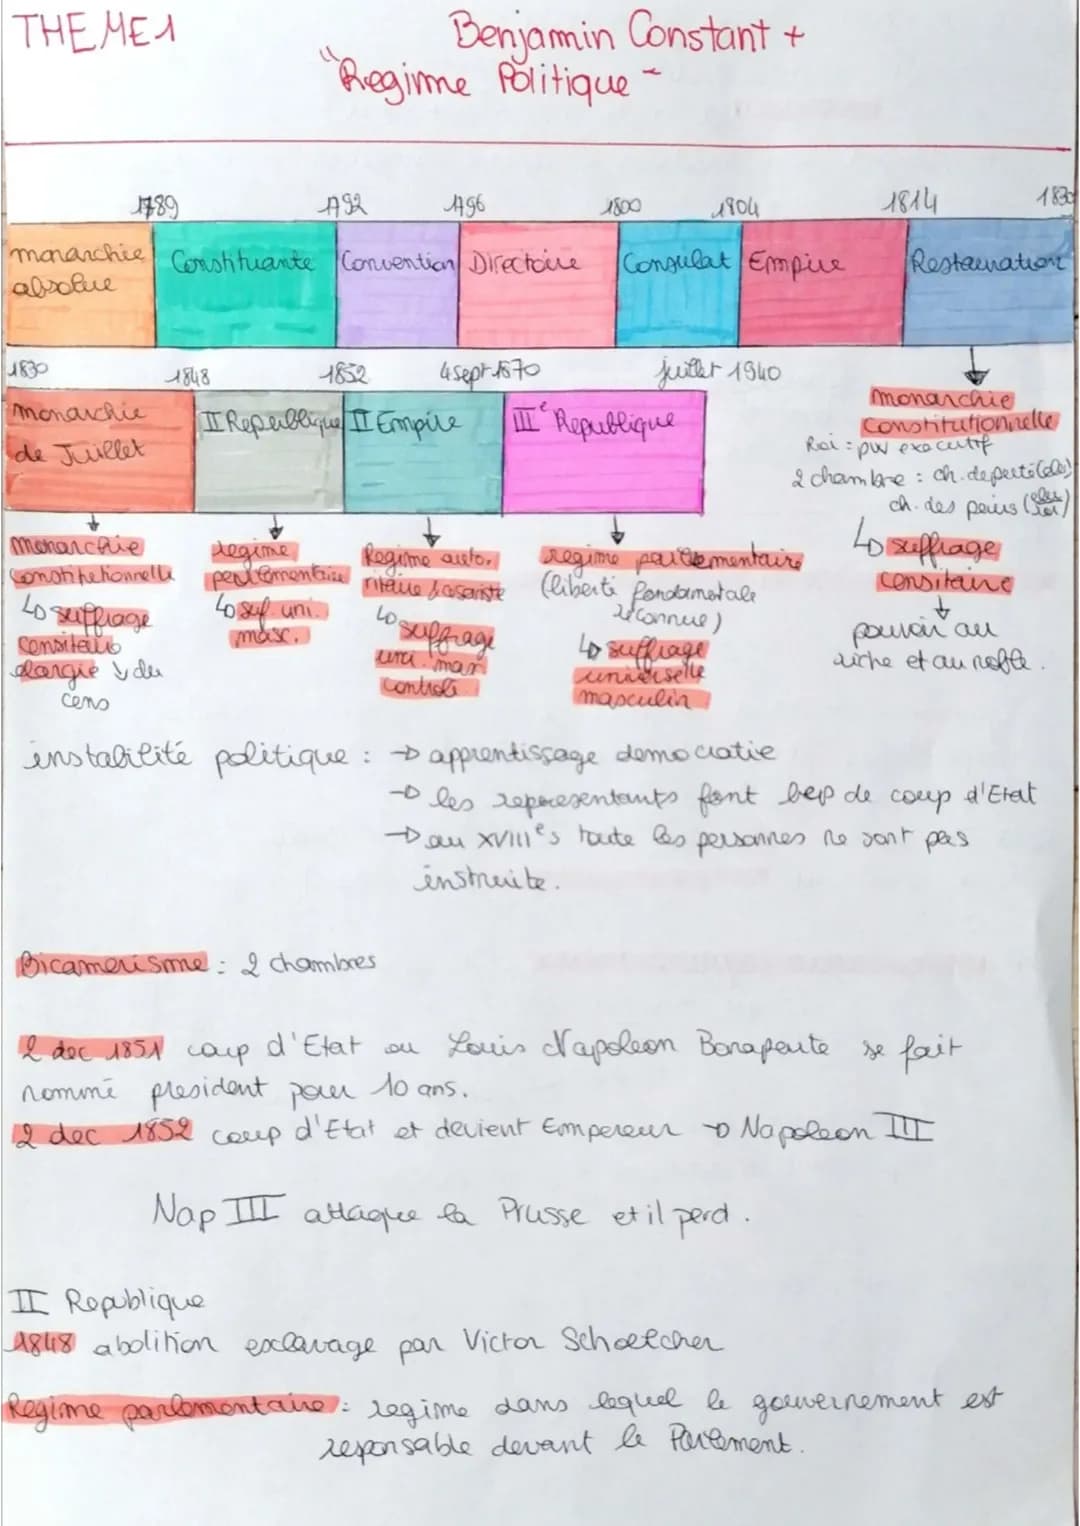 THEME 1
Benjamin Constant +
"Regime Politique"
1789 1792 1796 1800 1804 1814 1830
monarchie absolue
Constituante
Convention
Directoire
Consulat
Empire
Restauration
1830 1848 1852 4 sept 1870 juillet 1940
monarchie de Juillet
II Republique
II Empire
IIIe Republique
→ monarchie
constitutionnelle
Roi : pvr executif
2 chambre : ch. deputé (élus)
ch. des pairs
↳ suffrage
censitaire
↓
pouvoir au
riche et au noble.
monarchie
constitutionnelle
↳ suffrage
censitaire
elargie ↘ du
cens
regime
parlementaire
↳ suf. uni.
masc.
Regime auto-
ritaire
↳ suffrage
uni. mas
controlé
regime parlementaire
(liberté fondamentale
reconnue)
↳ suffrage
universelle
masculin
instabilité politique : → apprentissage democratie
→ les representants font bcp de coup d'Etat
→ au XVIIIe s toute les personnes ne sont pas
instruite.
Bicamerisme : 2 chambres
2 dec 1851 coup d'Etat ou Louis Napoleon Bonaparte se fait
nommé president pour 10 ans.
2 dec 1852 coup d'Etat et devient Empereur → Napoleon III
Nap III attaque la Prusse et il perd.
II Republique
1848 abolition exclavage par Victor Schoelcher
Regime parlementaire : regime dans lequel le gouvernement est
responsable devant le Parlement.